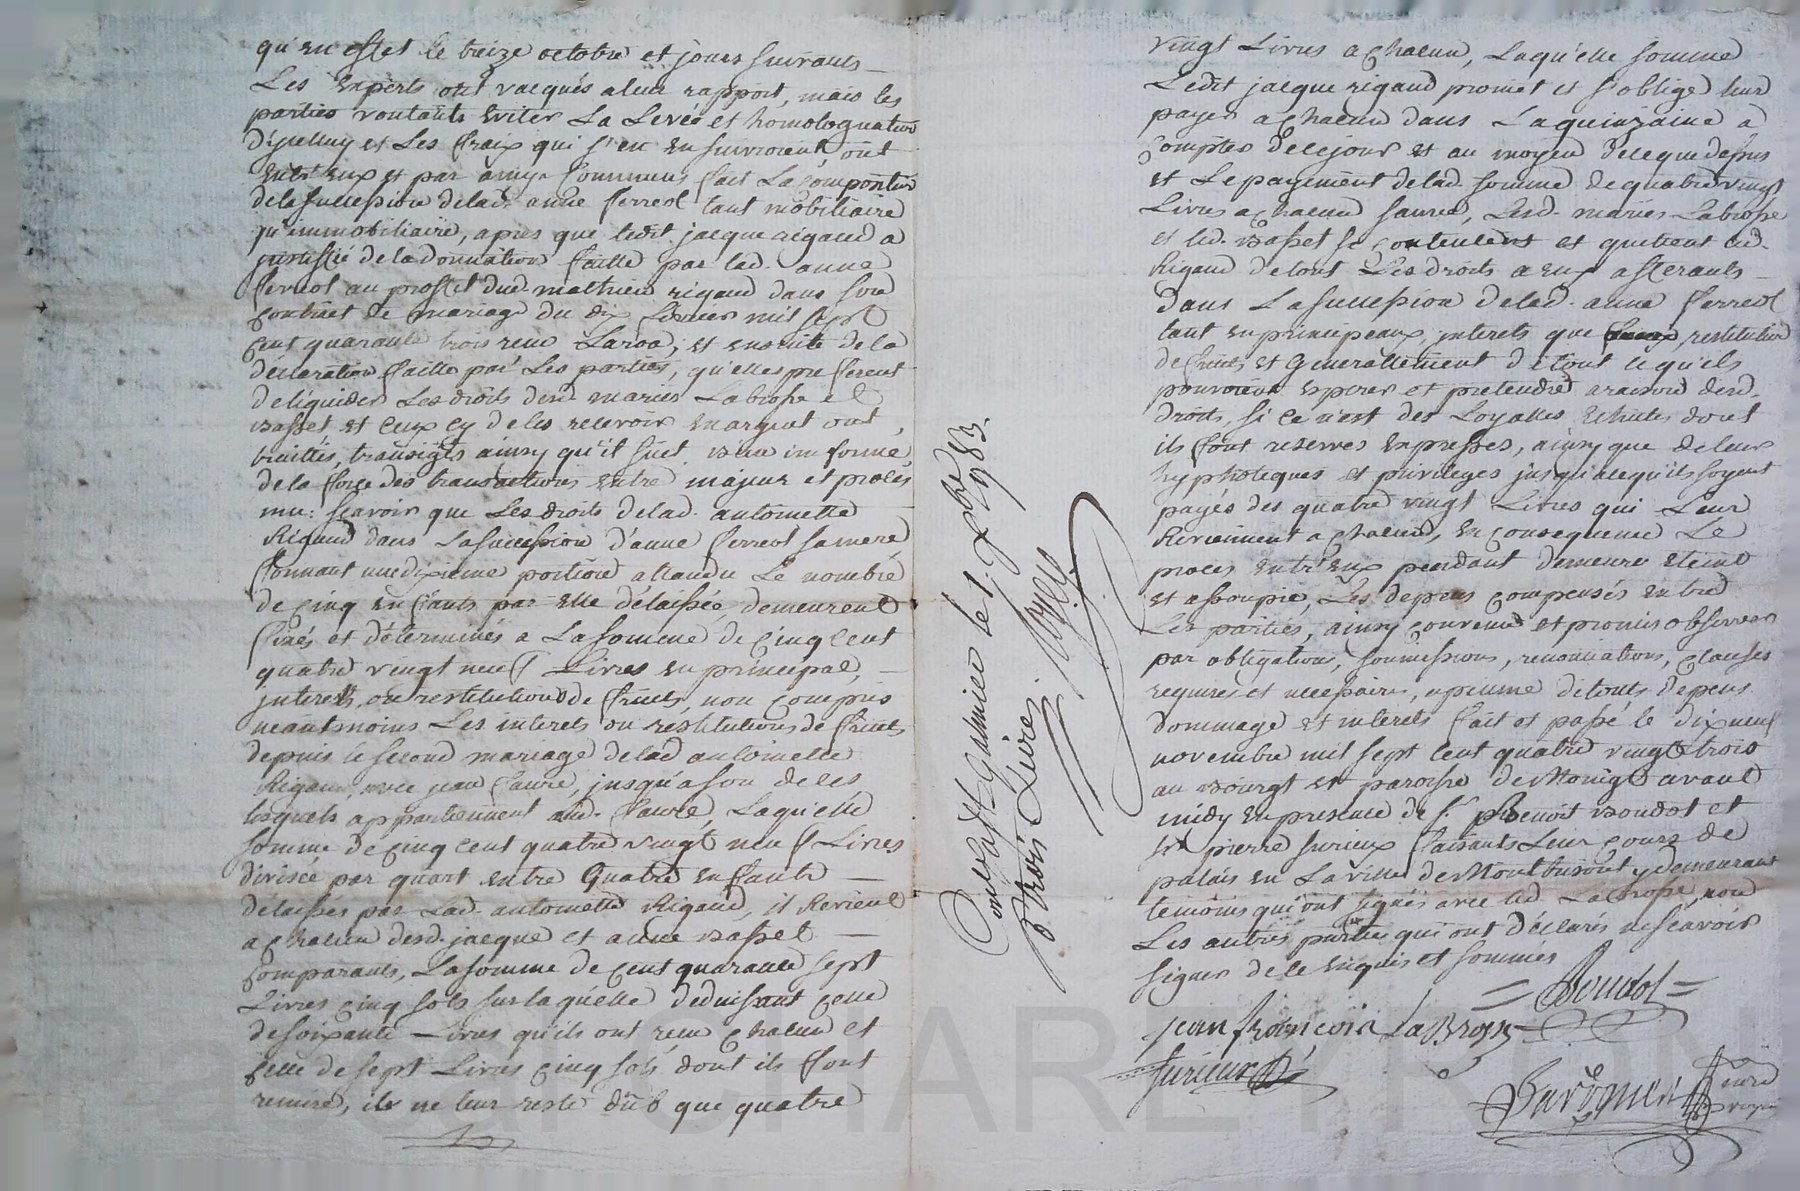 qu'en effet le treize octobre et jours suivants
Les Experts ont vacqués a leur rapport, mais les
parties voulants Eviter La Levée et homologuation
d'jcelluy et Les fraix qui s'en Ensuivroient ont
Entr'Eux et par amys Communs fait La Composition
de la Succession de lad. anne ferreol tant mobiliaire
qu'immobiliaire, apres que ledit jacque rigaud a
justiffié de la donnation faitte par lad. anne
ferreol au proffit dud. mathieu rigaud dans son
Contract de mariage du dix mil sept
Cent quarante trois recu Laroa, et ensuite de la
déclaration faitte par Les parties, qu'elles preferent
de liquider Les droits desd. maries Labrosse et
Basset et Ceux cy de les recevoir En argent ont
traittés, transigés ainsy qu'il suit
de la force des transactions Entre majeur et procés
mu: scavoir que Les droits de lad. antoinette
Rigaud dans La succession d'anne ferreol sa mere
formant une dixieme portion attandu Le nombre
de Cinq Enfants par Elle délaissée, demeurent
fixés et détérminés a La somme de Cinq Cent
quatre vingt neuf Livres En principal,
jnterets, ou restitutions de fruits, non Compris
néantmoins Les interets ou restitutions de fruits
depuis le second mariage de lad antoinette
Rigaud, avec jean faure, jusqu'a son deces
lesquels appartiennent aud. faure, Laquelle
somme de Cinq Cent quatre vingt neuf Livres
divisée par quart entre quatre Enfants
délaissés par Lad. antoinette Rigaud, il Revient
a Chacun desd. jacque et anne Basset
Comparants, La somme de Cent quarante sept
Livres Cinq sols sur laquelle deduisant Celle
de soixante Livres qu'ils ont recu Chacun et
Celle de sept Livres Cinq sols dont ils font
remise, il ne leur reste dub que quatre
Controllé a St Galmier le 1. Xbre 1783.
R trois Livres.
vingt Livres a Chacun, Laquelle somme
Ledit jacque rigaud promet et s'oblige leur
payer a Chacun dans La quinzaine a
Compter de ce jour et au moyen de ce que dessus
et Le payement de lad. somme de quatre vingt
Livres a Chacun Lesd. maries Labrosse
et led. Basset se Contentent et quittent led.
Rigaud de tout Les droits a eux afferants
dans La succession de lad. anne ferreol
tant en principeaux, interets que restitution
de fruits, et Generallement de tout ce qu'ils
pouvoient Esperer et pretendre a raison desd.
droits, si ce n'est des Loyalles Echutes dont
ils font reserves Expresses, ainsy que de leur
hypoteques et privileges jusqu'a ce qu'ils soyent
payés des quatre vingt Livres qui Leur
Reviennent a Chacun, En Consequence Le
procés Entr'Eux pendant demeure Eteint
et assoupie, Les depens Compensés Entre
Les parties, ainsy Convenu et promis observer
par obligations, soumissions, renonciations, Clauses
requises et necessaires, a peinne de touts depens
dommage et interets fait et passé le dix neuf
novembre mil sept Cent quatre vingt trois
au Bourgt et paroisse de avant
midy En presence de s. Benoit Boudot et
sr pierre surieux faisants Leur Cours de
palais en La ville de Montbrisont y demeurant
temoins qui ont signés avec led. Labrosse, non
Les autres parties qui ont déclarés ne scavoir
signer de ce Enquis et sommés
= Boudot =
jean françois LaBrosse
surieux